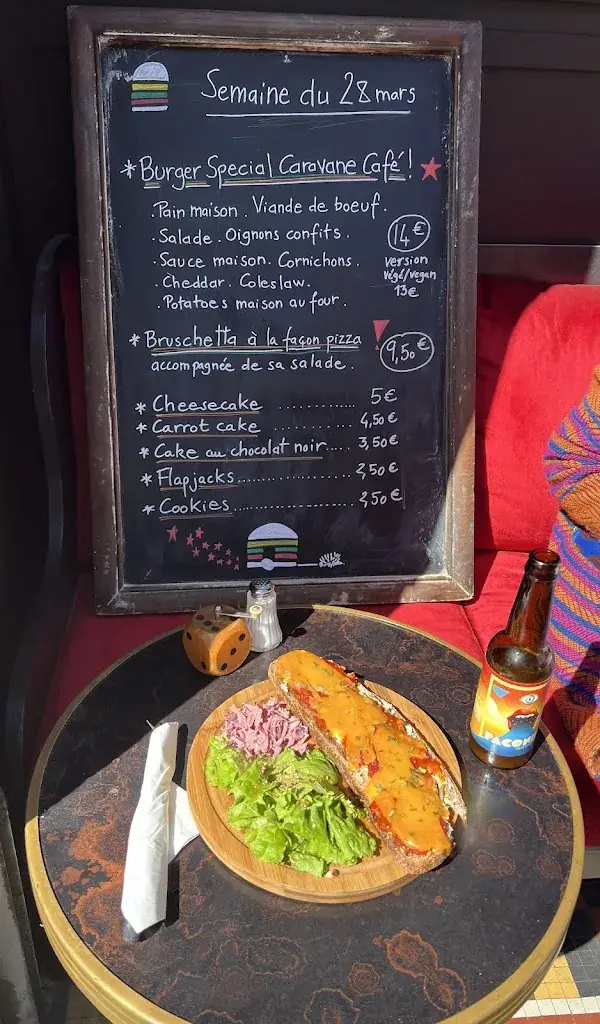 Semaine du 28 mars
* Burger Special Caravane Café !
. Pain maison . Viande de boeuf .
. Salade . Oignons confits .
. Sauce maison . Cornichons .
. Cheddar . Coleslaw .
. Potatoes maison au four .
14€
version
végé/vegan
13€
* Bruschetta à la façon pizza !
accompagnée de sa salade .
9,50€
* Cheesecake .............. 5€
* Carrot cake .............. 4,50€
* Cake au chocolat noir .... 3,50€
* Flapjacks .................. 2,50€
* Cookies .................... 2,50€